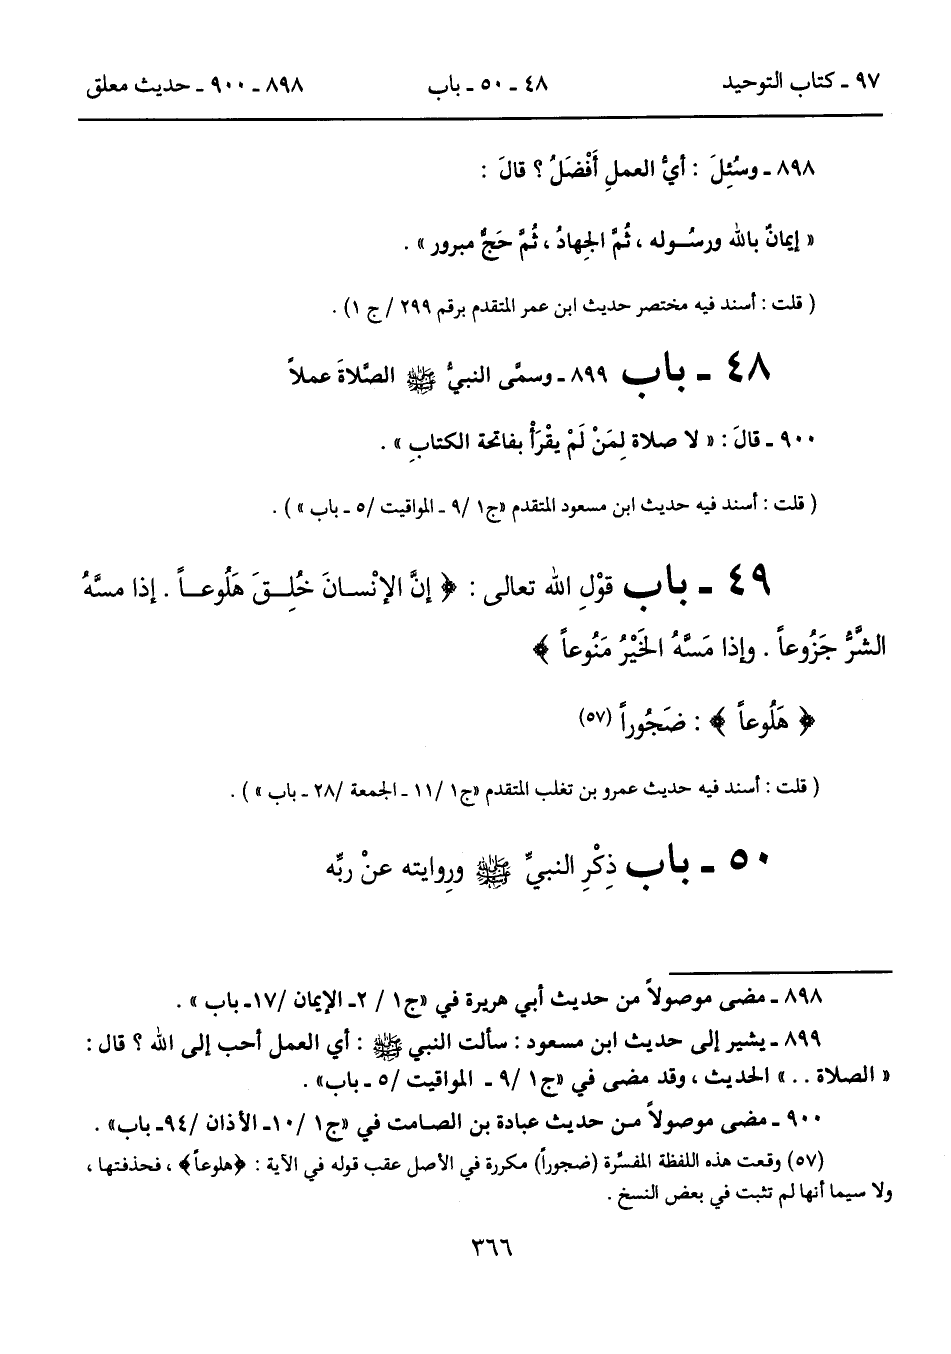 ٩٧ ـ كتاب التوحيد ٤٨ ـ ٥٠ ـ باب ٨٩٨ ـ ٩٠٠ ـ حديث معلق
٨٩٨ ـ وسُئِلَ : أيُّ العملِ أَفْضَلُ ؟ قالَ :
« إيمانٌ بالله ورسُوله ، ثُمَّ الجِهادُ ، ثُمَّ حَجٌّ مبرور » .
( قلت : أسند فيه مختصر حديث ابن عمر المتقدم برقم ٢٩٩ / ج ١) .
٤٨ ـ باب ٨٩٩ ـ وسمَّى النبيُّ ﷺ الصَّلاةَ عملاً
٩٠٠ ـ قالَ : « لا صلاة لِمَنْ لَمْ يقْرَأْ بفاتحة الكتابِ » .
( قلت : أسند فيه حديث ابن مسعود المتقدم «ج١ /٩ ـ المواقيت /٥ ـ باب » ) .
٤٩ ـ باب قوْلِ الله تعالى : ﴿ إنَّ الإنْسانَ خُلِقَ هَلُوعاً . إذا مسَّهُ
الشَّرُّ جَزُوعاً . وإذا مَسَّهُ الخَيْرُ مَنُوعاً ﴾
﴿ هَلُوعاً ﴾ : ضَجُوراً (٥٧)
( قلت : أسند فيه حديث عمرو بن تغلب المتقدم «ج١ /١١ ـ الجمعة /٢٨ ـ باب » ) .
٥٠ ـ باب ذِكْرِ النبيِّ ﷺ ورِوايته عنْ ربِّه
٨٩٨ ـ مضى موصولاً من حديث أبي هريرة في «ج١ / ٢ـ الإيمان /١٧ـ باب » .
٨٩٩ ـ يشير إلى حديث ابن مسعود : سألت النبي ﷺ : أي العمل أحب إلى الله ؟ قال :
« الصلاة . . » الحديث ، وقد مضى في «ج١ /٩ ـ المواقيت /٥ ـ باب» .
٩٠٠ ـ مضى موصولاً من حديث عبادة بن الصامت في «ج١ /١٠ـ الأذان /٩٤ـ باب» .
(٥٧) وقعت هذه اللفظة المفسِّرة (ضجوراً) مكررة في الأصل عقب قوله في الآية : ﴿هلوعاً﴾ ، فحذفتها ،
ولا سيما أنها لم تثبت في بعض النسخ .
٣٦٦